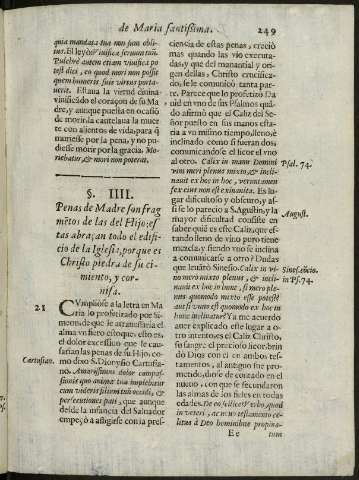 de Maria santissima. 249
quia mandata tua non sum obli-
tus. El leyò viuifica seruum tuũ.
Pulchrè autem etiam viuifica po-
test dici, eo quod mori non possit
quem humeris suis virtus porta-
uerat. Estaua la virtud diuina
viuificando el coraçon de su Ma-
dre, y aunque puesta en ocasiõ
de morir, la cautelaua la muer-
te con alientos de vida, para q̃
muriesse por la pena, y no pu-
diesse morir por la gracia. Mo-
riebatur, & mori non poterat.
§. IIII.
Penas de Madre son frag
mẽtos de las del Hijo; es
tas abraçan todo el edifi-
cio de la Iglesia, porque es
Christo piedra de su ci-
miento, y cor-
nisa.
21
CVmpliòse a la letra en Ma
ria lo profetizado por Si-
meon, de que le atrauessaria el
alma vn fiero estoque; esto es,
el dolor excessiuo que le cau-
sarian las penas de su Hijo, co-
mo dixo S. Dionysio Cartusia-
no.
Cartusian.
& persecutiones pati, que aunque
desde la infancia del Saluador
empeçò a afligirse con la pres-
ciencia de estas penas, creciò
mas quando las vio executa-
das, y que del manantial y ori
gen dellas, Christo crucifica-
do, se le comunicò tanta par-
te. Parece que lo profetizò Da
uid en vno de sus Psalmos quã-
do afirmò que el Caliz del Se-
ñor puesto en sus manos esta-
ria a vn mismo tiempo, lleno, è
inclinado como si fueran dos,
comunicandose el licor de vno
al otro. Calix in manu Domini
vini meri plenus mixto, & incli-
nauit ex hoc in hoc, verumtamen
fex eius non est exinanita. Es lu-
gar dificultoso y obscuro, y assi
se lo pareciò a S. Agustin, y la
mayor dificultad consiste en
saber què es este Caliz, que es-
tando lleno de vino puro tiene
mezcla, y siendo vno se inclina
a comunicarse a otro? Dudas
que leuãtò Sinesio. Calix in vi-
no mero mixto plenus, & incli-
nauit ex hoc in hunc, si mero ple-
nus quomodo mixto esse potest?
aut si vnus est quomodo ex hoc in
hunc inclinatur? Ya me acuerdo
auer explicado este lugar a o-
tro intento, es el Caliz Christo,
su sangre el precioso licor, brin
dò Dios con èl en ambos tes-
tamentos, al antiguo fue pro-
metido, diose de contado en el
nueuo, con que se fecundaron
las almas de los fieles en todas
edades. De eo scilicet verbo, quod
in veteri, ac nouo testamento cæ-
litus à Deo hominibus propina-
Ee tum
Psal. 74.
August.
in Ps. 74.